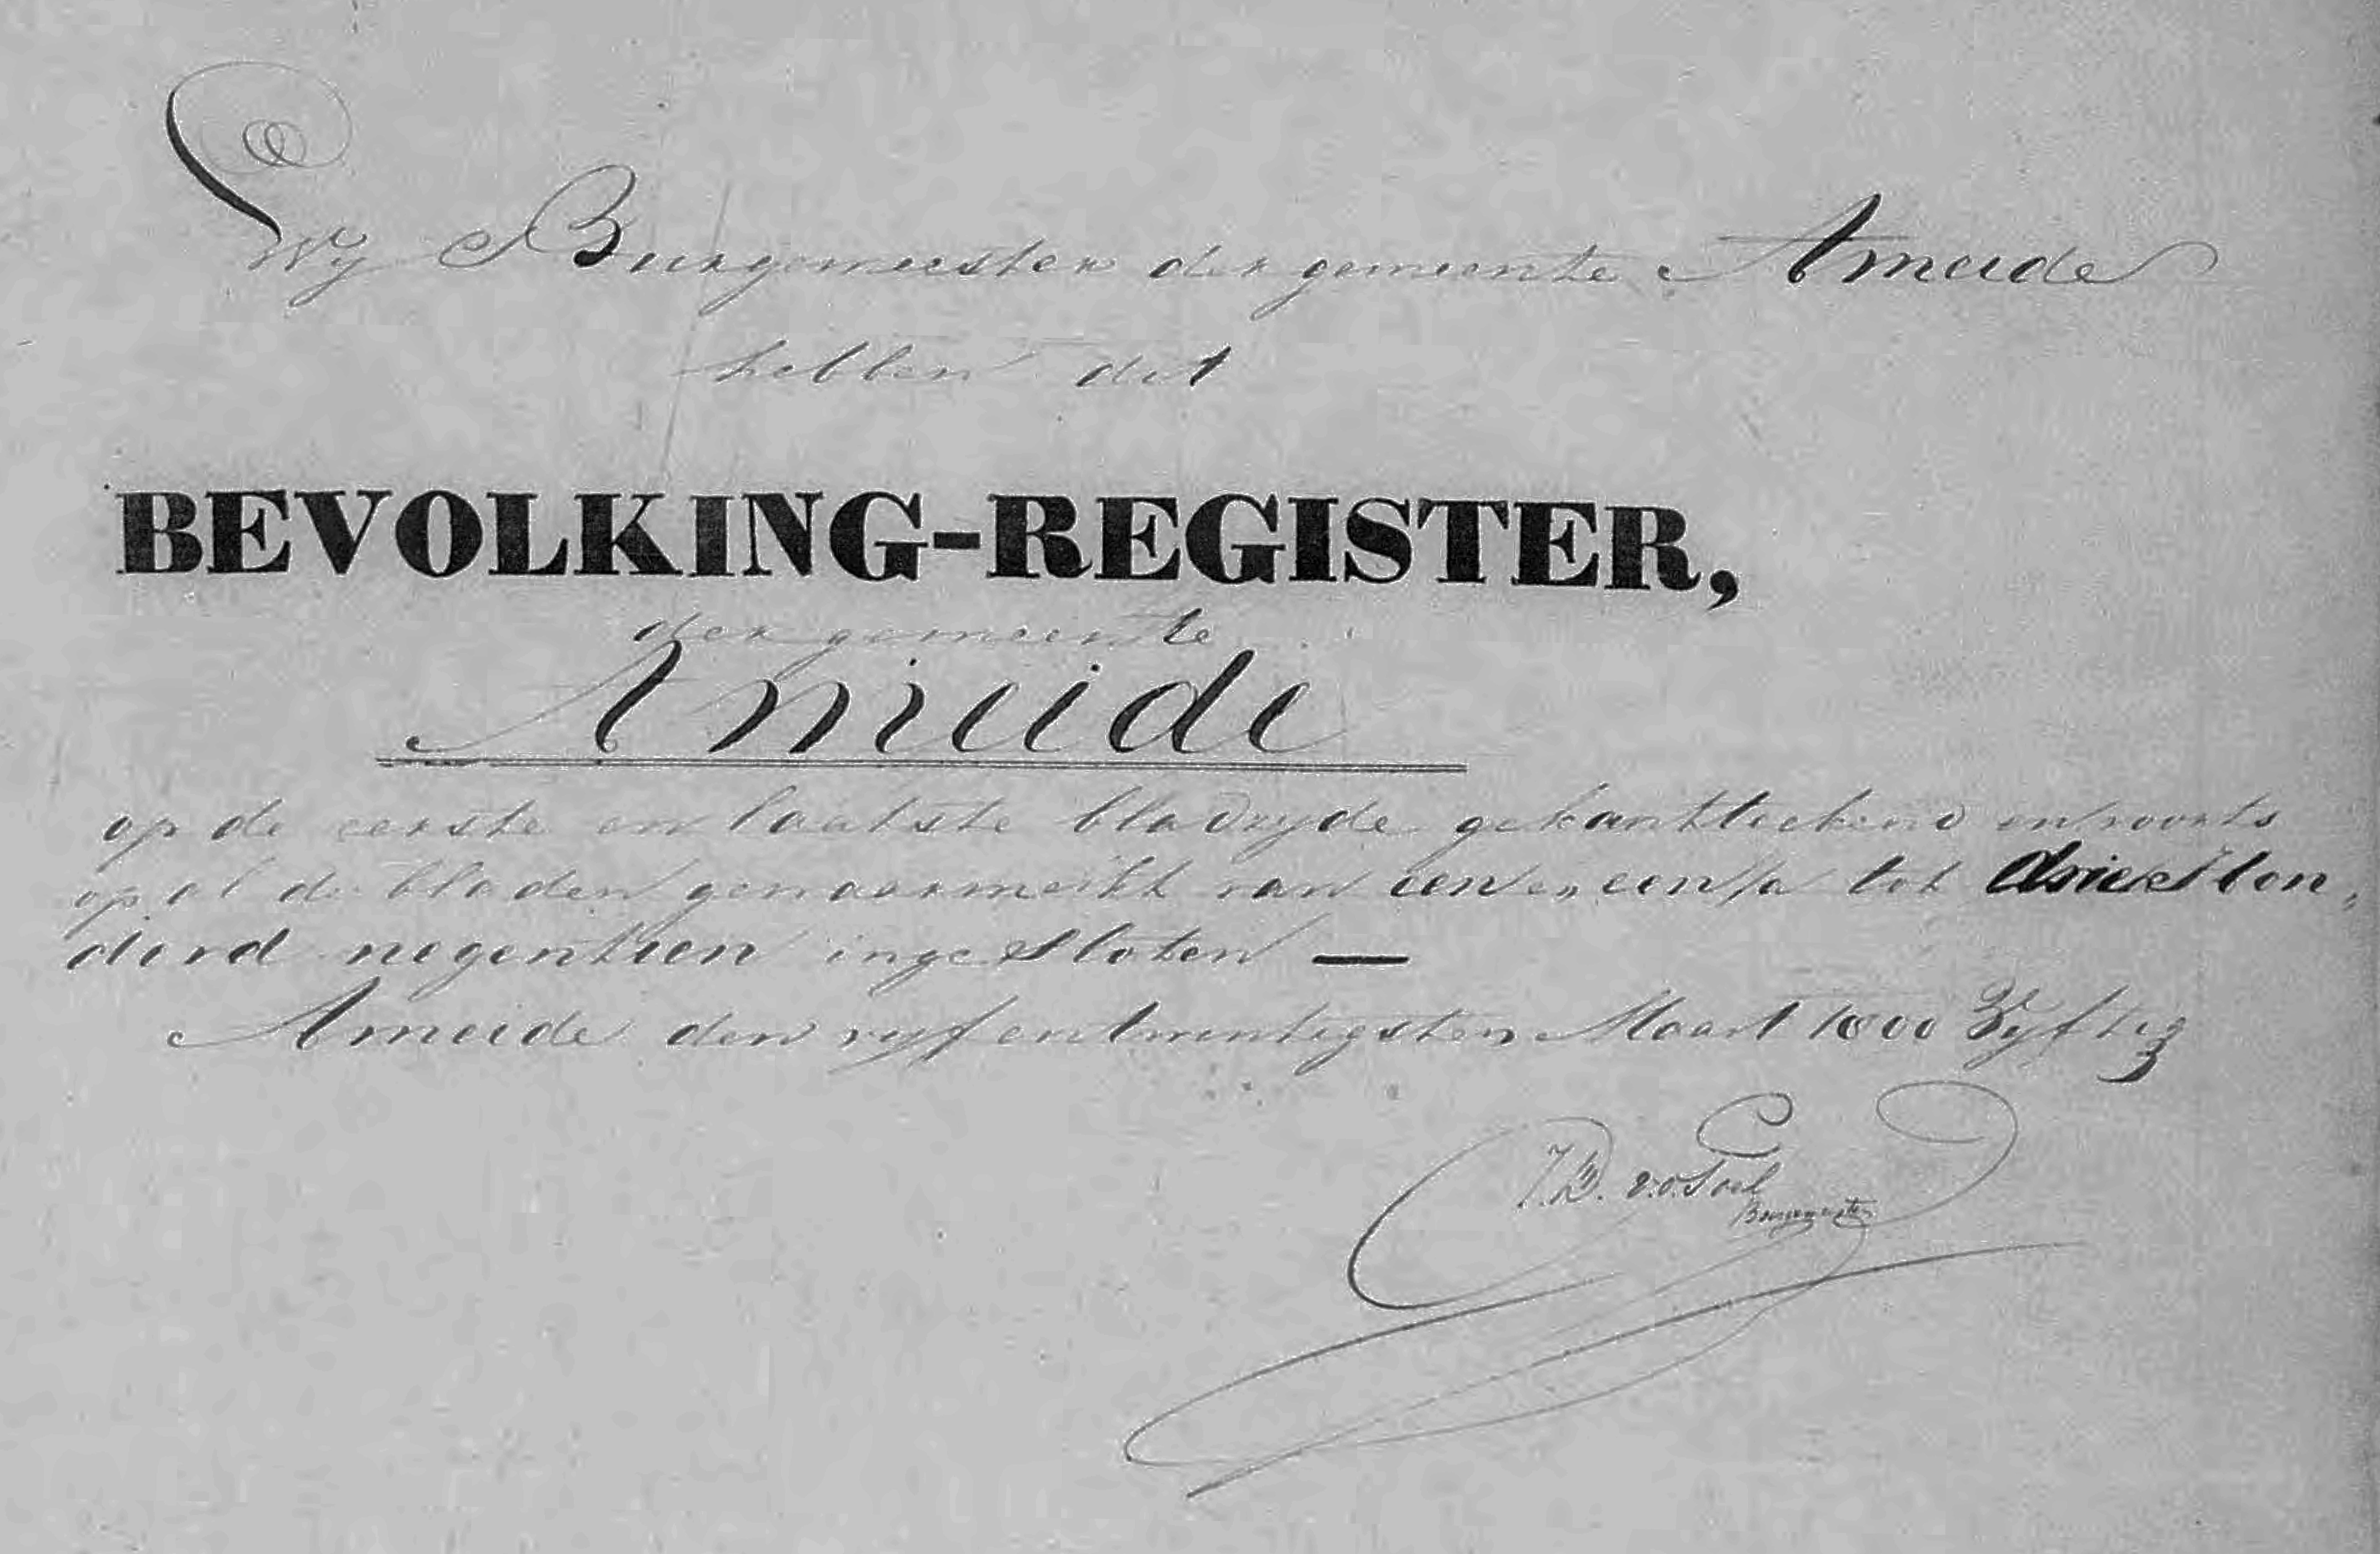 Wy Burgemeester der gemeente Ameide
hebben dit
BEVOLKING-REGISTER,
der gemeente
Ameide
op de eerste en laatste bladzyde gekantteekend en voorts
op al de bladen genummerkt van een en een/a tot driehon„
derd negentien ingesloten —
Ameide den vyf en twintigsten Maart 1800 Vyftig
Burgemeester